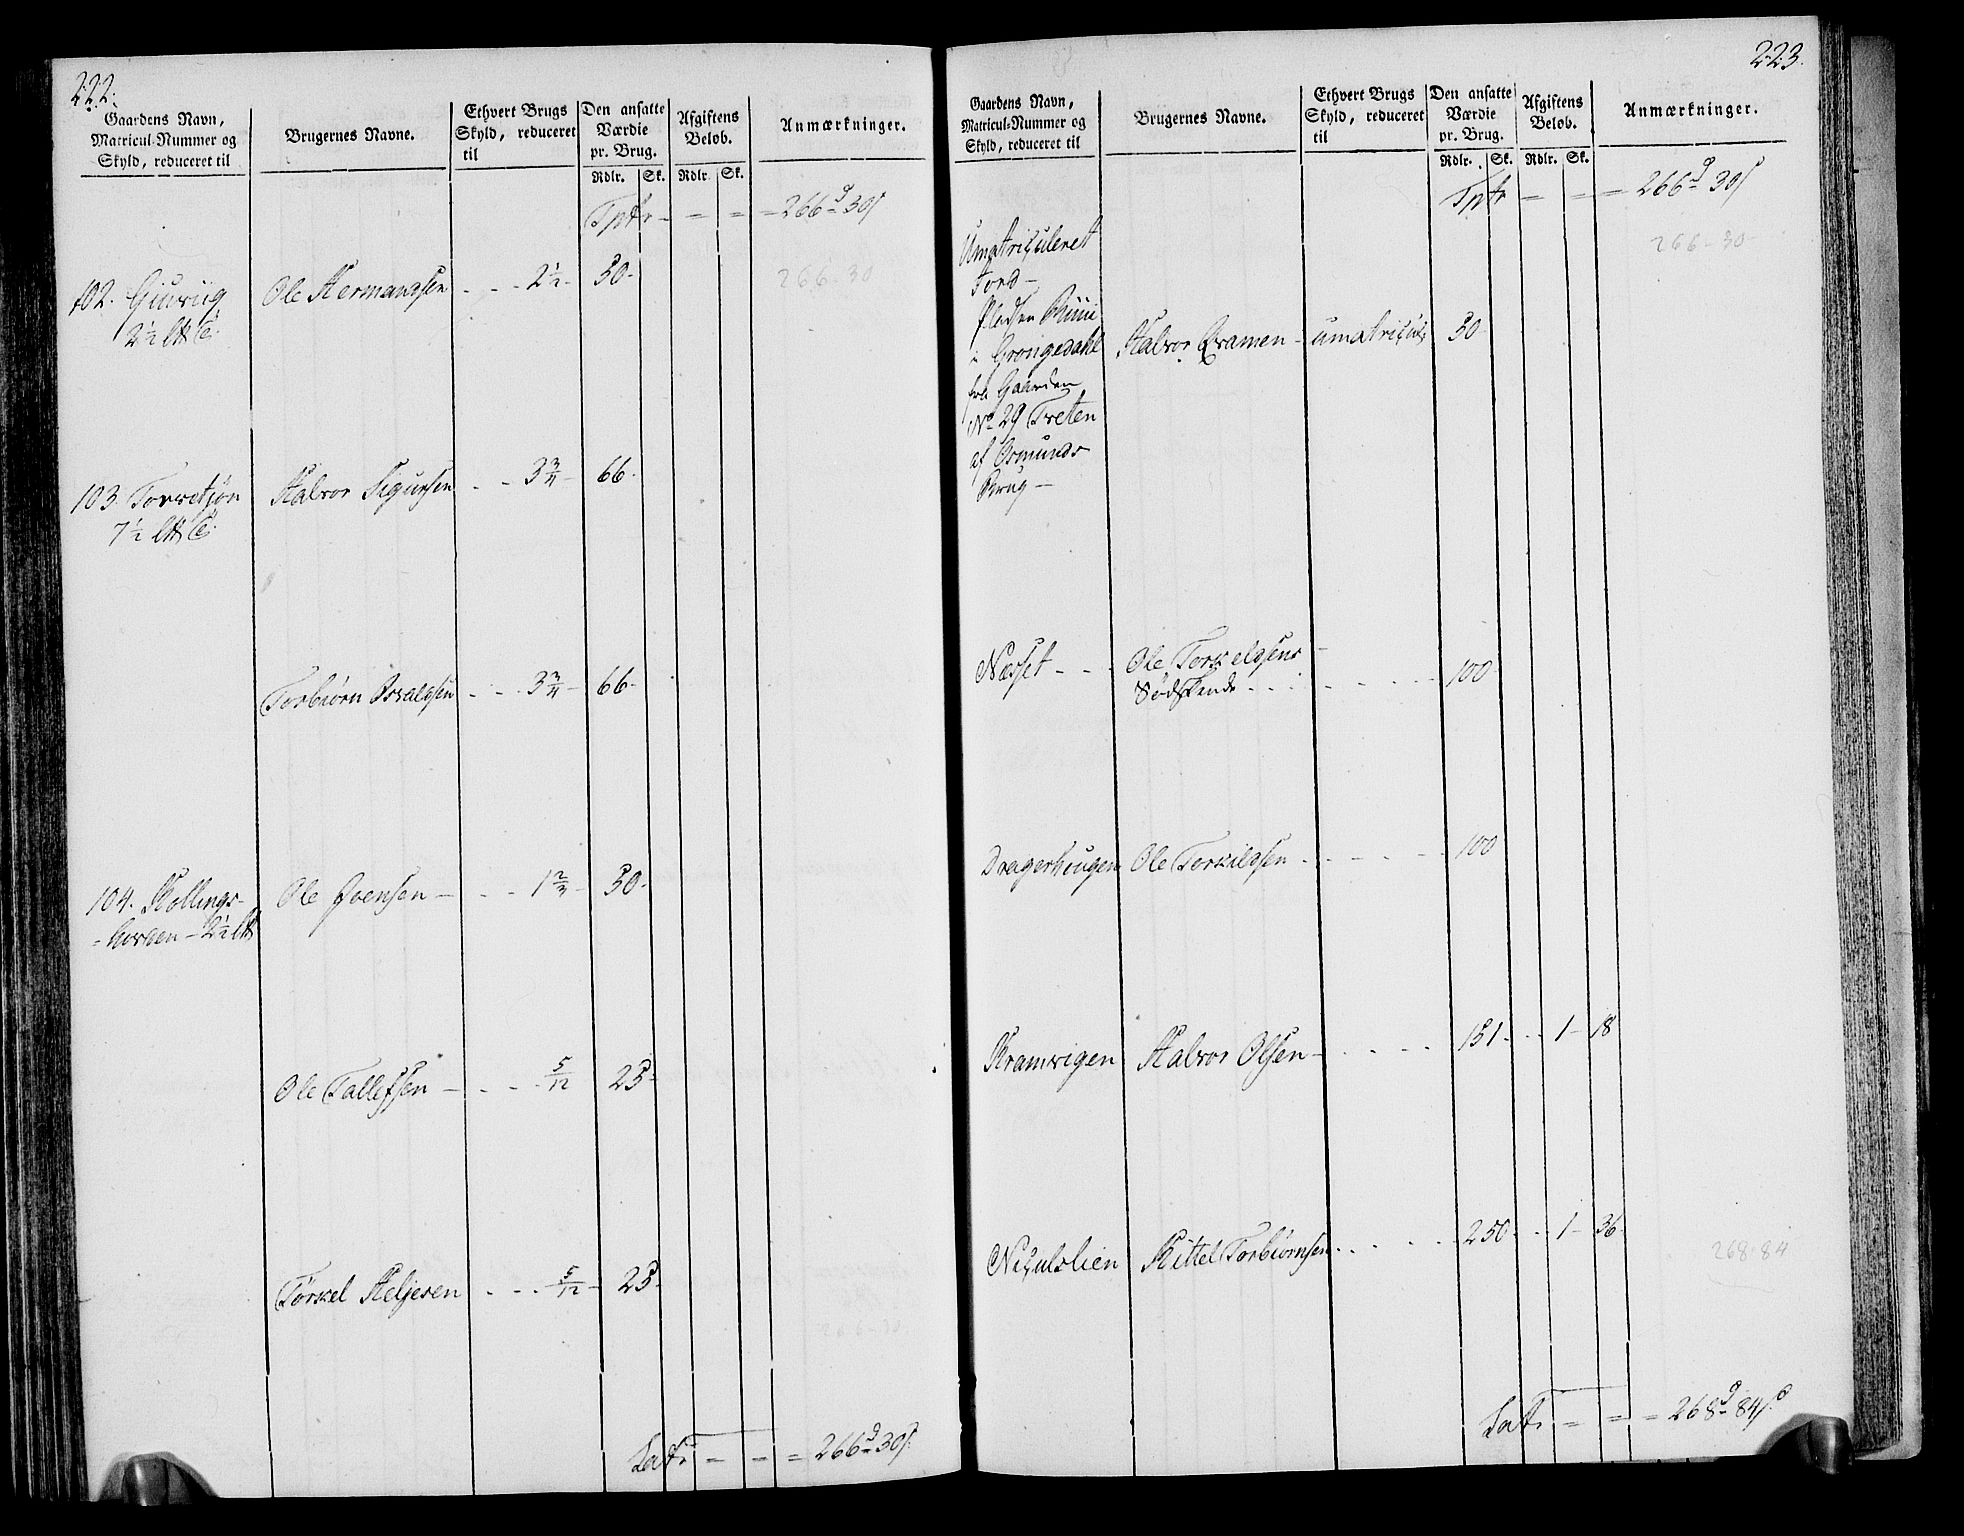 222.
Gaardens Navn,
Matricul-Nummer og
Skyld, reduceret til
Brugernes Navne.
Ethvert Brugs
Skyld, reduceret
til
Den ansatte
Værdie
pr. Brug.
Rdlr. Sk.
Afgiftens
Beløb.
Rdlr. Sk.
Anmærkninger.
Tptr - = = = 266 d 30 s
266-30
102. Giuviig Ole Hermandsen - - - 2½ - 50-
2½ l℔ T.
103 Torvetjøn Halvor Sigursen - - 3¾ - 66-
7½ l℔ T.
Torbiørn Osvalgsen - - - 3¾ - 66-
104. Kollings- Ole Jvensen - - - - 1⅔ - 50-
- hovden - 2½ l℔
Ole Tallefsen - - - - 5/12 25-
Tørkel Heljesen - - - - 5/12 - 25-
266-30
Latr = = = 266 d 30 s
223.
Gaardens Navn,
Matricul-Nummer og
Skyld, reduceret til
Brugernes Navne.
Ethvert Brugs
Skyld, reduceret
til
Den ansatte
Værdie
pr. Brug.
Rdlr. Sk.
Afgiftens
Beløb.
Rdlr. Sk.
Anmærkninger.
Tptr - = = = 266 d 30 s
266-30
Umatriculeret
Jord -
Pladsen
i Grongedahl Halvor Qvamen - umatricul; 50
fra Gaarden
No 29 Treten
af Osmunds
Brug -
Næsset - - - Ole Torkelsens -
Sødskende - - - - - - - 100-
Dragerhougen Ole Torkilsen - - - - - 100
Kramvigen Halvor Olsen - - - - - 151- - 1- 18
Niculslien Kittel Torbiørnsen - - - - - 250- - 1- 36-
268-84
Latr = = = 268 d 84 s